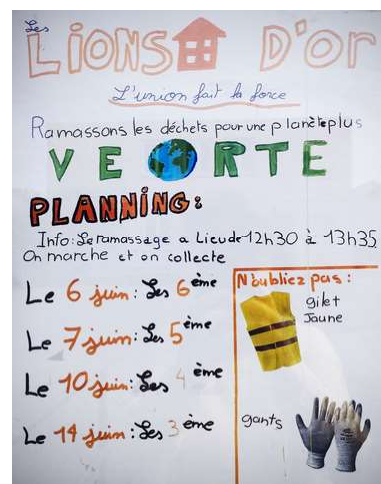 Les
LIONS D'OR
L'union fait la force
Ramassons les déchets pour une planète plus
VERTE
PLANNING:
Info: Le ramassage a Lieu de 12h30 à 13h35
On marche et on collecte
Le 6 juin: Les 6ème
Le 7 juin: Les 5ème
Le 10 juin: Les 4ème
Le 14 juin: Les 3ème
N'oubliez pas:
gilet
Jaune
gants